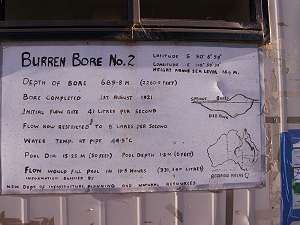 BURREN BORE No. 2
LATITUDE S
LONGITUDE E
HEIGHT ABOVE SEA LEVEL
DEPTH OF BORE 689.8 M (2260.5 FEET)
BORE COMPLETED 1ST AUGUST 1921
INITIAL FLOW RATE 41 LITRES PER SECOND
FLOW NOW RESTRICTED TO LITRES PER SECOND
WATER TEMP. AT PIPE
POOL DIA 15.25 M (50 FEET) POOL DEPTH (6 FEET)
FLOW WOULD FILL POOL IN HOURS LITRES
INFORMATION SUPPLIED BY
NSW DEPT OF INFRASTRUCTURE PLANNING AND NATURAL RESOURCES